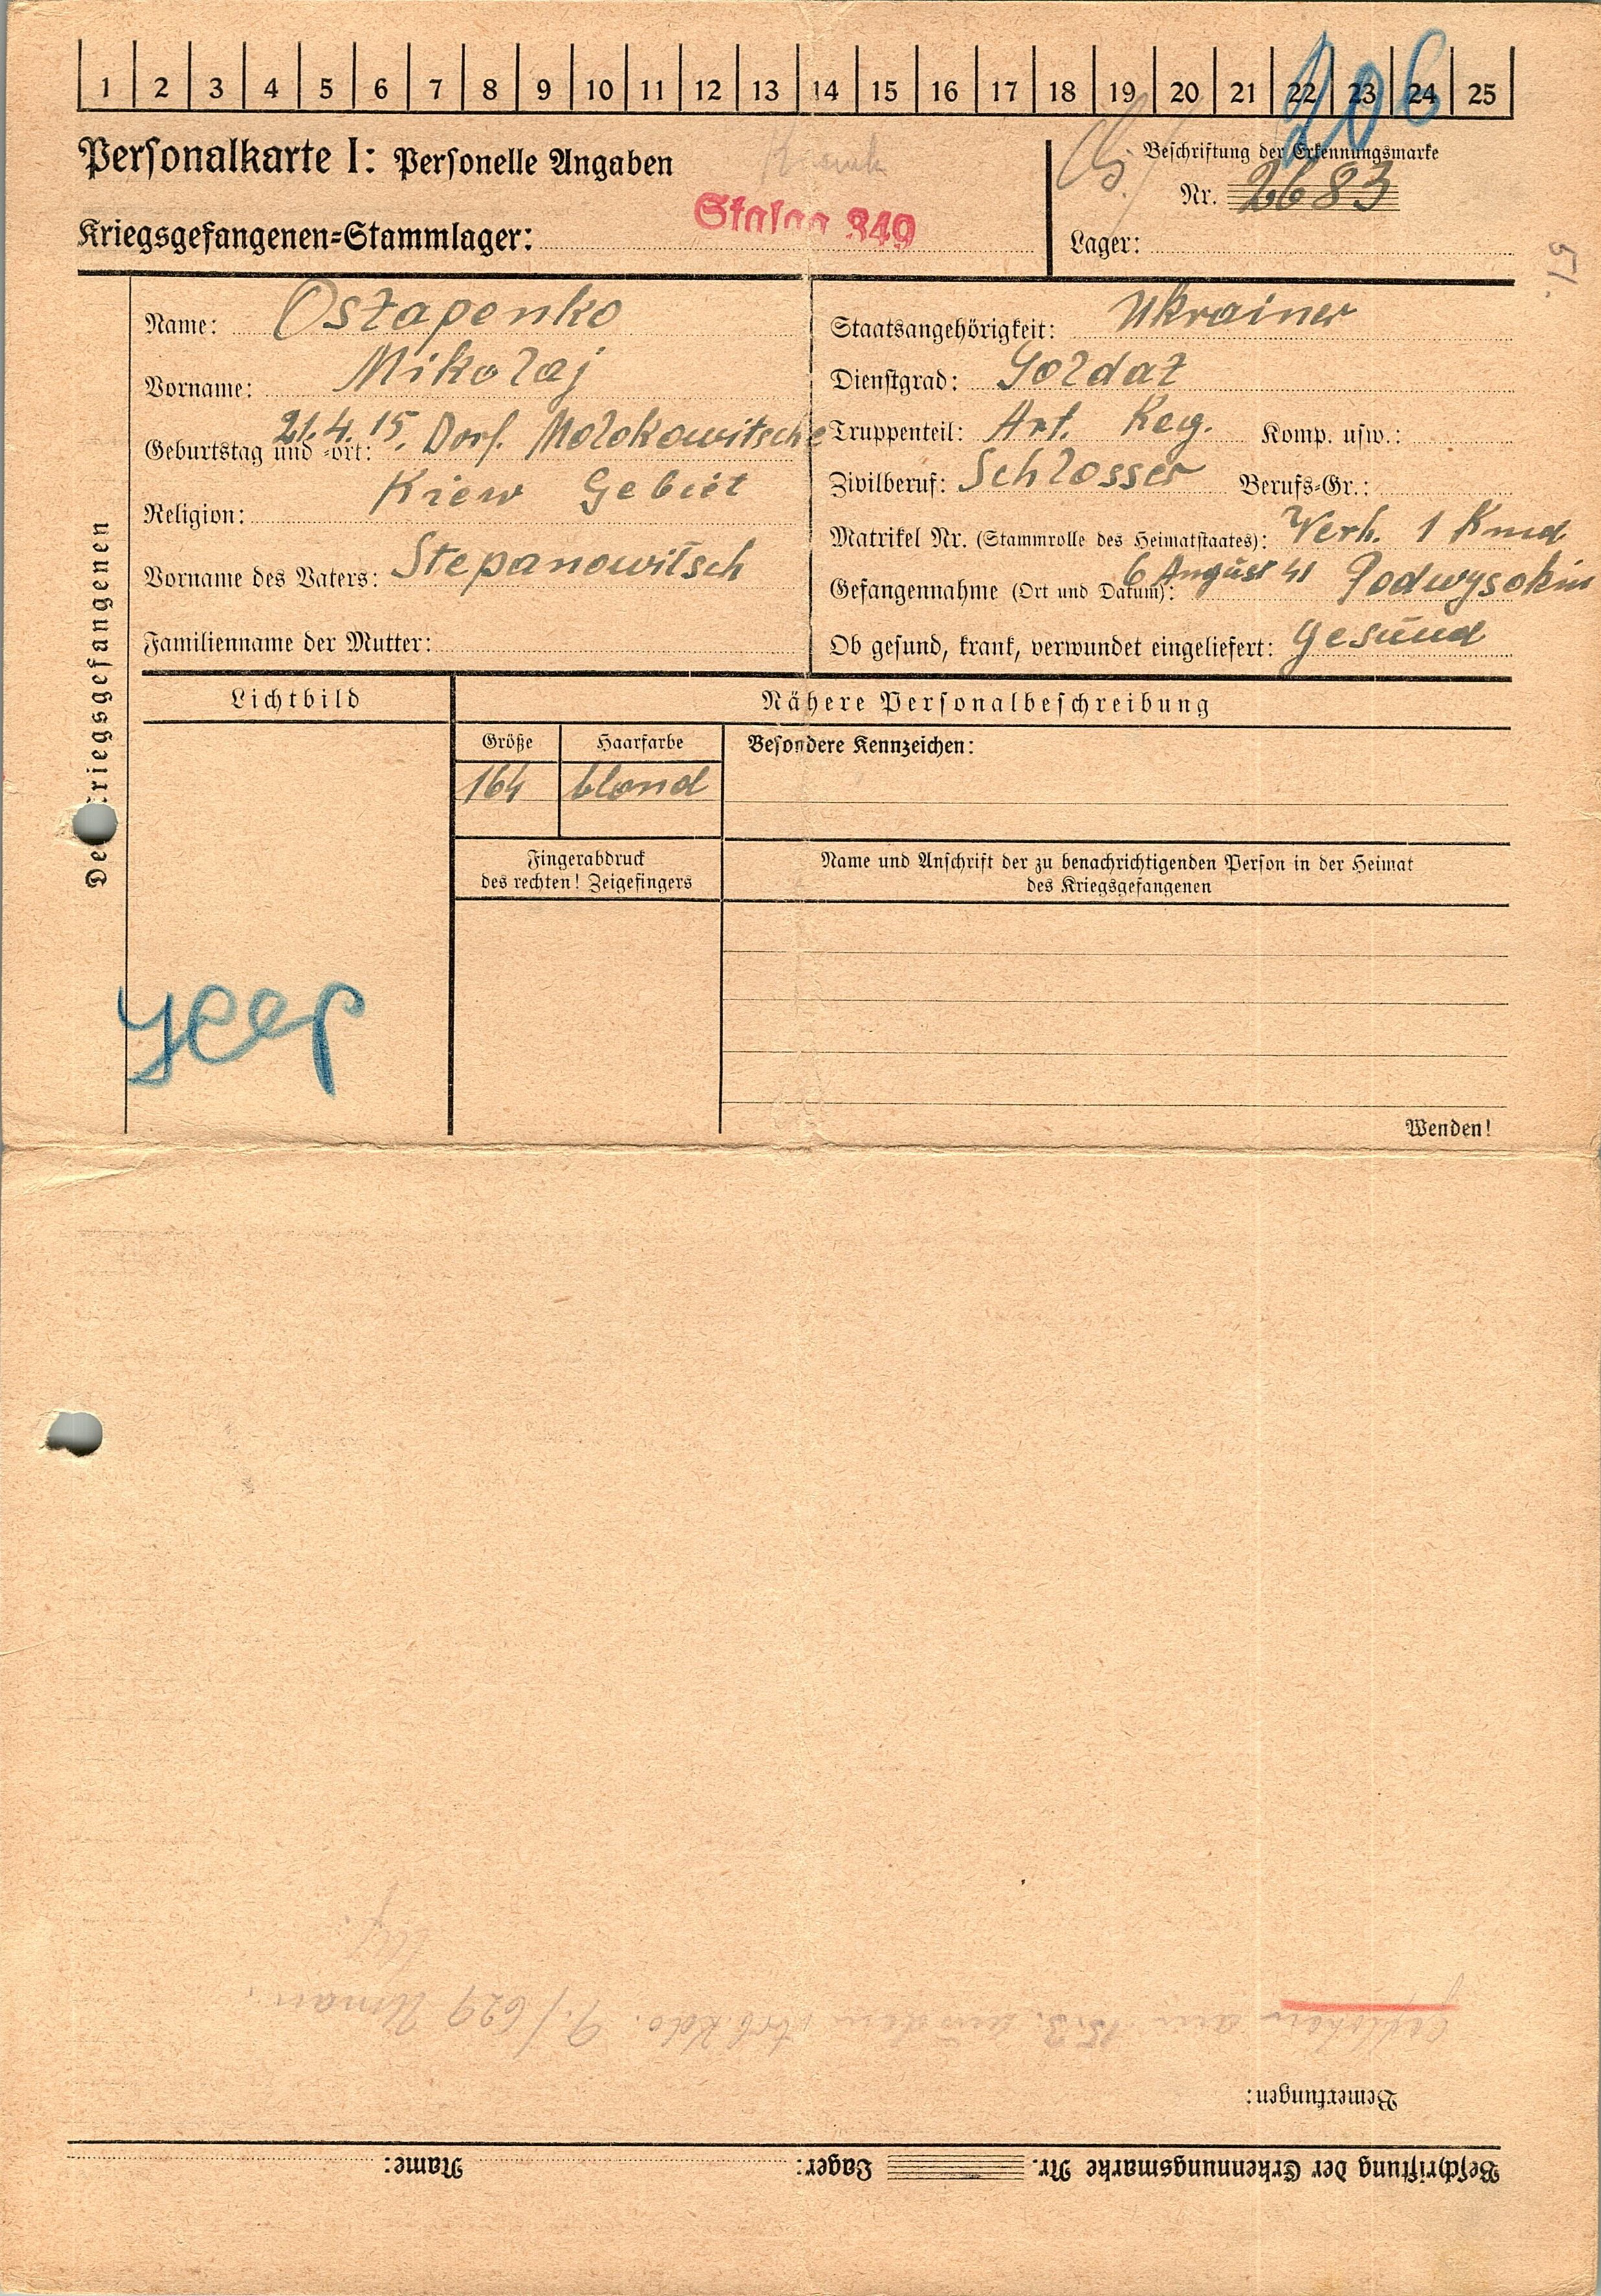 1 2 3 4 5 6 7 8 9 10 11 12 13 14 15 16 17 18 19 20 21 22 23 24 25
206
Personalkarte I: Personelle Angaben
Beschriftung der Erkennungsmarke
Nr. 2683
Kriegsgefangenen-Stammlager: Stalag 349
Lager:
51.
Des Kriegsgefangenen
Name: Ostapenko
Vorname: Mikolaj
Geburtstag und -ort: 21.4.15. Dorf. Molokowitsche
Kiew Gebiet
Religion:
Vorname des Vaters: Stepanowitsch
Familienname der Mutter:
Staatsangehörigkeit: Ukrainer
Dienstgrad: Soldat
Truppenteil: Art. Reg. Komp. usw.:
Zivilberuf: Schlosser Berufs-Gr.:
Matrikel Nr. (Stammrolle des Heimatstaates): Verh. 1 Kind
Gefangennahme (Ort und Datum): 6 August 41 Podwysokin
Ob gesund, krank, verwundet eingeliefert: gesund
Lichtbild
Nähere Personalbeschreibung
Größe Haarfarbe
164 blond
Besondere Kennzeichen:
Fingerabdruck
des rechten! Zeigefingers
Name und Anschrift der zu benachrichtigenden Person in der Heimat
des Kriegsgefangenen
Wenden!
Beschriftung der Erkennungsmarke Nr. Lager: Name:
Bemerkungen:
Geflohen am 15.3. aus dem Arb. Kdo. 9./629 Uman.